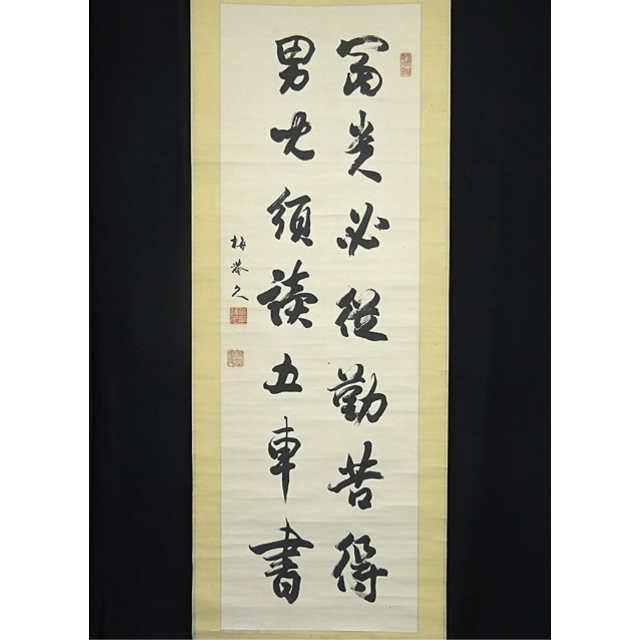 富貴必從勤苦得
男兒須讀五車書